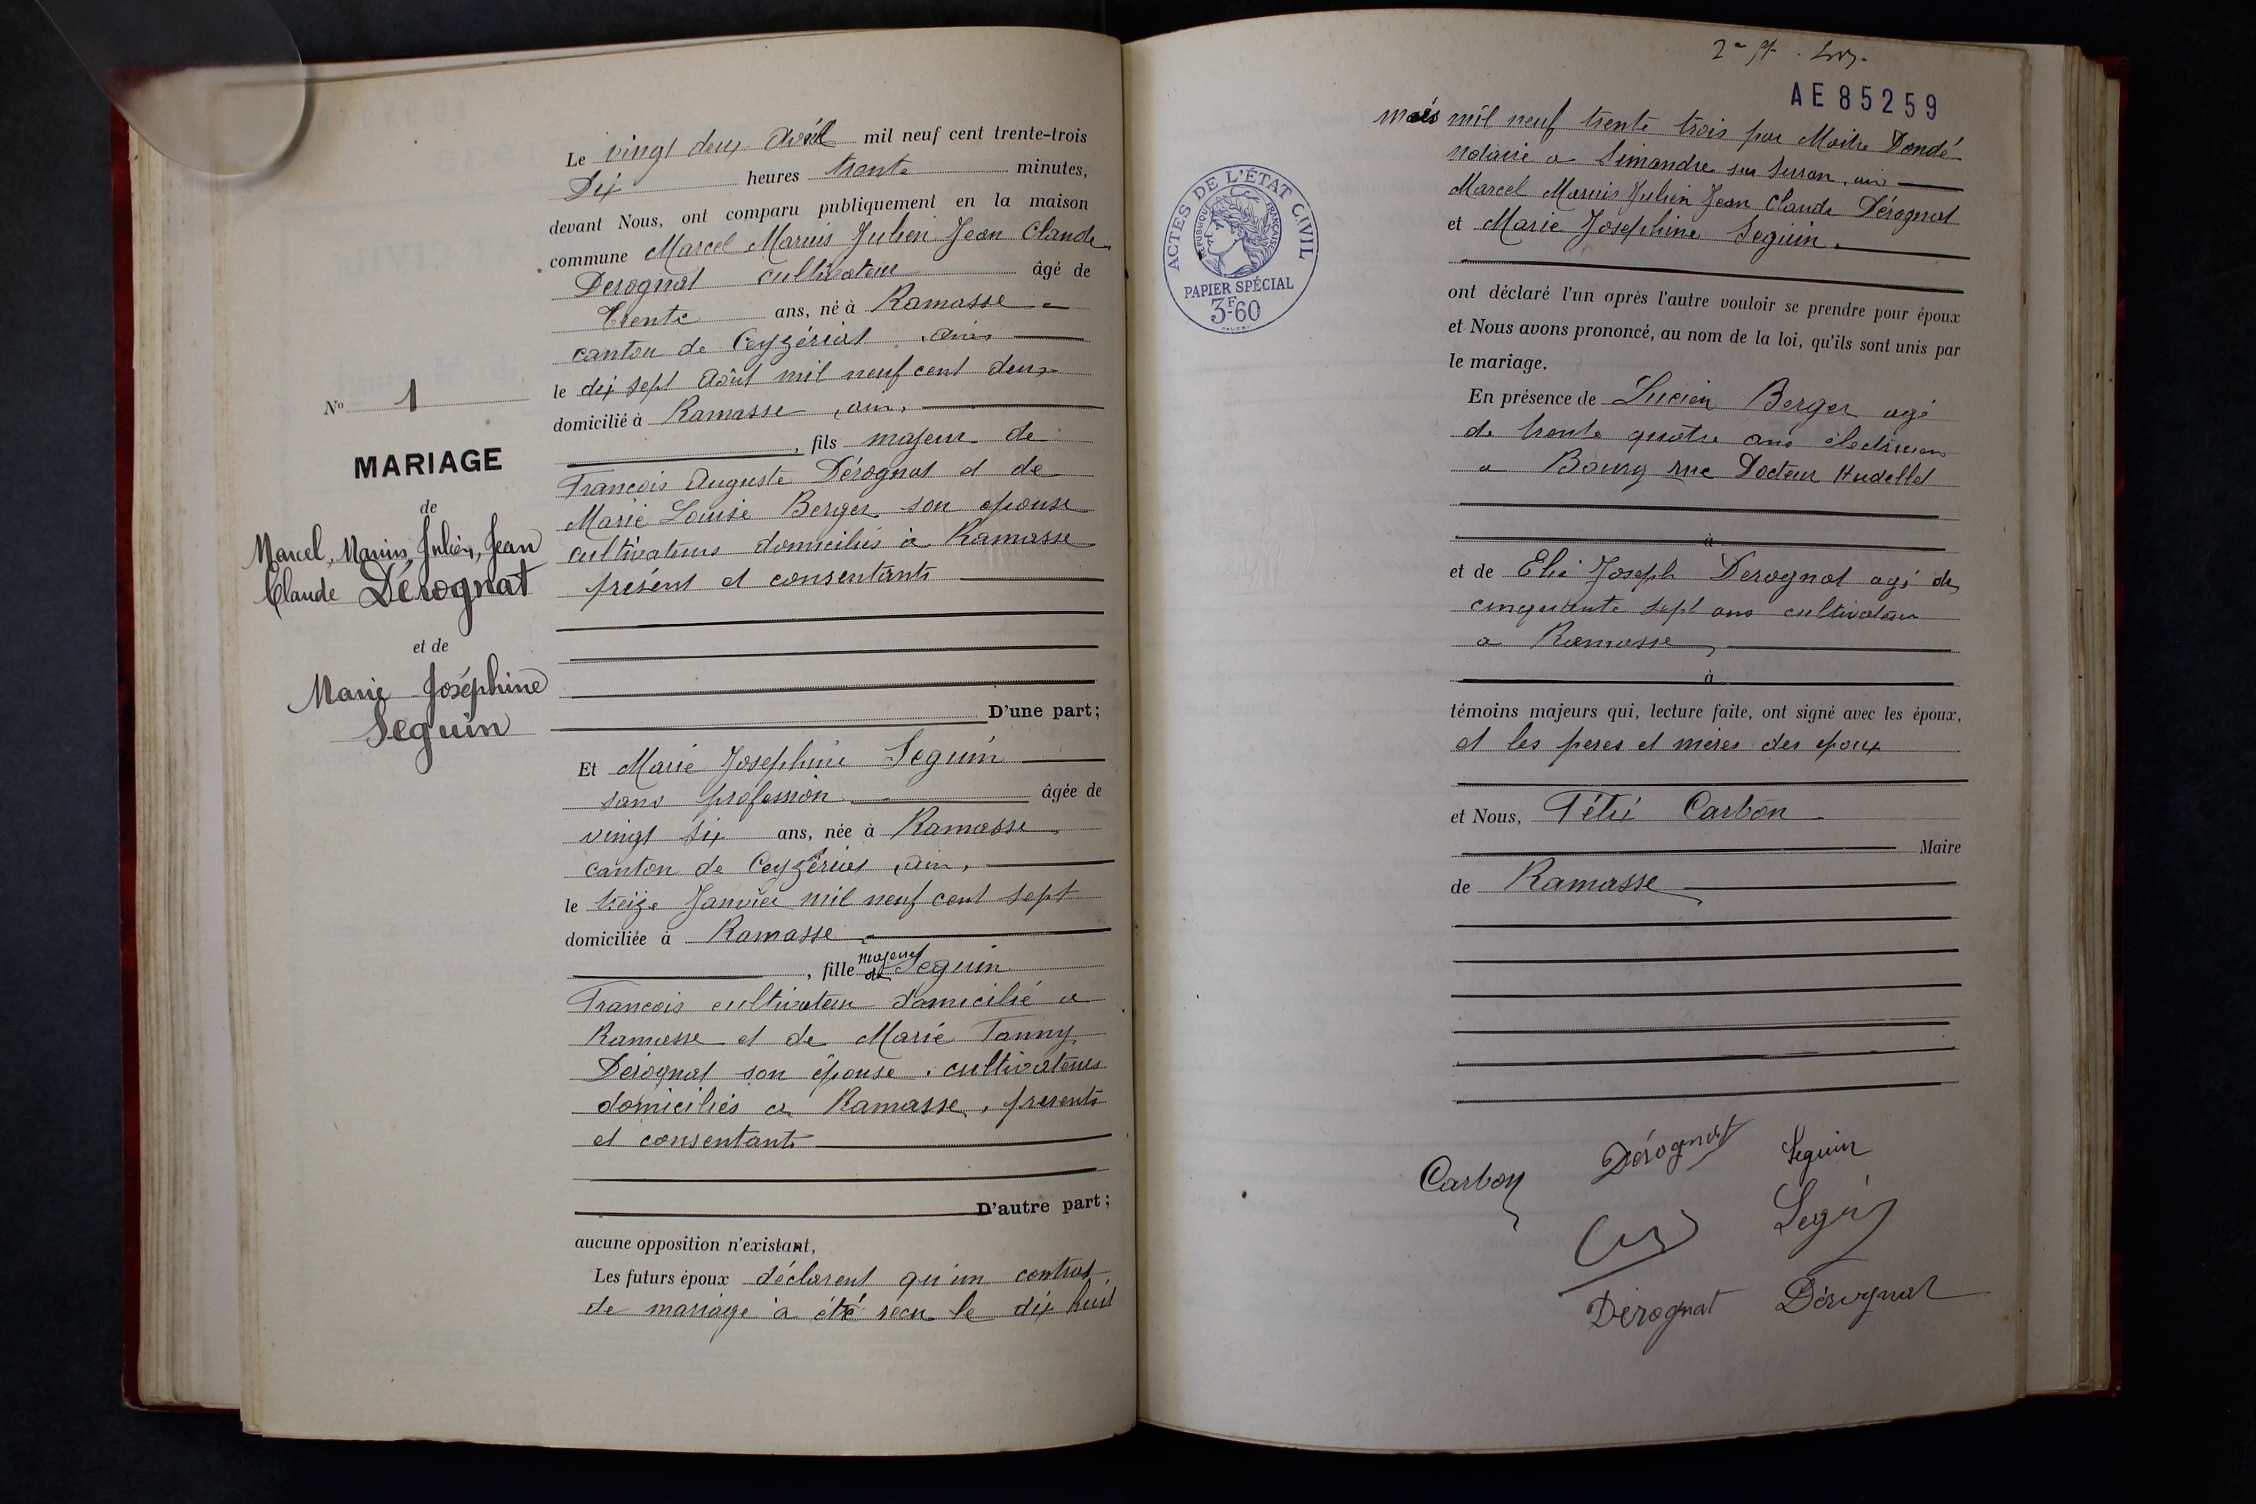 Le vingt deux Avril mil neuf cent trente-trois
Dix heures trente minutes,
devant Nous, ont comparu publiquement en la maison
commune Marcel Marius Julien Jean Claude
Derognat cultivateur âgé de
Trente ans, né à Ramasse
canton de Ceyzériat, ain
le dix sept Août mil neuf cent deux
domicilié à Ramasse, ain,
, fils majeur de
Francois Auguste Dérognat et de
Marie Louise Berger son epouse
cultivateurs domiciliés à Ramasse
présent et consentants
D'une part;
Nº 1
MARIAGE
de
Marcel, Marius, Julien, Jean
Claude Dérognat
et de
Marie Joséphine
Seguin
Et Marie Josephine Seguin
sans profession âgée de
vingt six ans, née à Ramasse
canton de Ceyzériat, ain,
le treize Janvier mil neuf cent sept
domiciliée à Ramasse
, fille majeure de Seguin
Francois cultivateur domicilié a
Ramasse et de Marie Fanny
Dérognat son épouse, cultivateurs
domiciliés a Ramasse, presents
et consentants
D'autre part;
aucune opposition n'existant,
Les futurs époux déclarent qu'un contrat
de mariage à été recu le dix huit
AE 85259
mars mil neuf trente trois par Maitre Dondé
notaire a Simandre sur Surran, ain
Marcel Marius Julien Jean Claude Dérognat
et Marie Josephine Seguin.
ACTES DE L'ÉTAT CIVIL
RÉPUBLIQUE FRANÇAISE
PAPIER SPÉCIAL
3F60
ont déclaré l'un après l'autre vouloir se prendre pour époux
et Nous avons prononcé, au nom de la loi, qu'ils sont unis par
le mariage.
En présence de Lucien Berger agé
de trente quatre ans électricien
a Bourg rue Docteur Hudellet
à
et de Elie Joseph Derognat agé de
cinquante sept ans cultivateur
a Ramasse,
à
témoins majeurs qui, lecture faite, ont signé avec les époux,
et les peres et mères des epoux
et Nous, Félix Carbon
Maire
de Ramasse
Carbon Dérognat Seguin
Seguin
Dérognat Dérognat